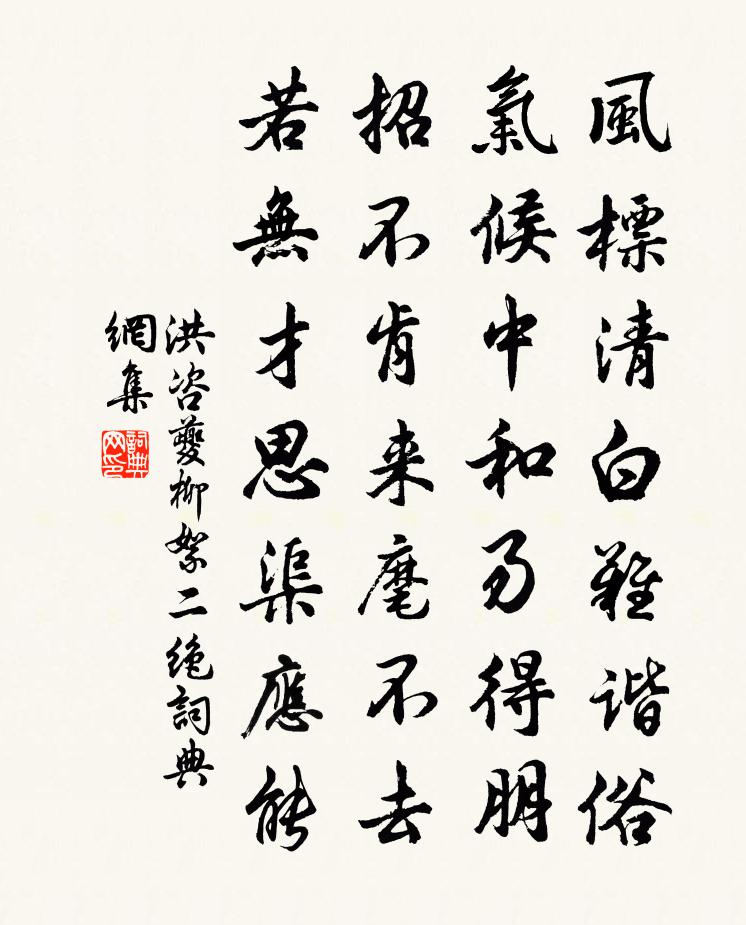 風標清白難諧俗
氣候中和易得朋
招不肯来麾不去
若無才思渠應能
洪咨夔柳絮二絶詞典
網集
詞典
网印